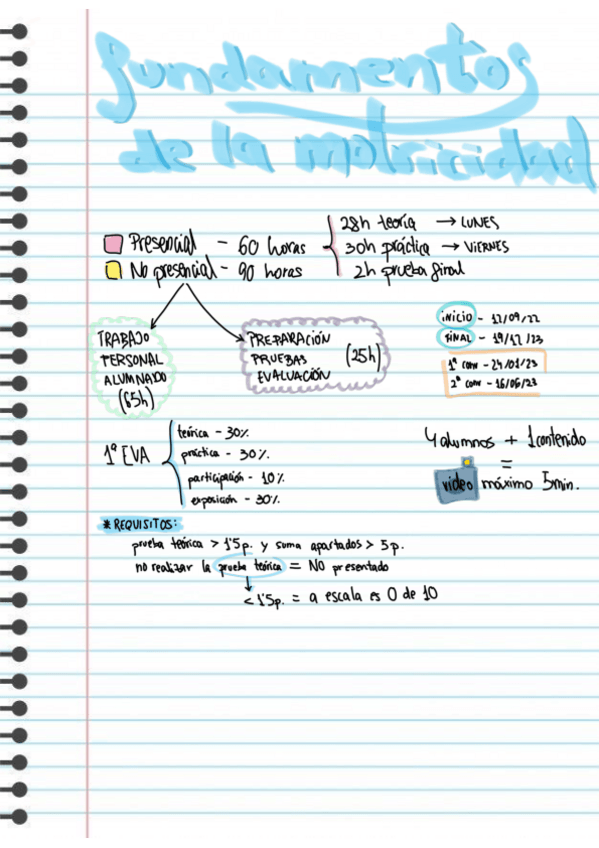 fundamentos
de la motricidad
Presencial - 60 horas
28h teoría → LUNES
30h práctica → VIERNES
2h prueba final
No presencial - 90 horas
TRABAJO
PERSONAL
ALUMNADO
(65h)
PREPARACIÓN
PRUEBAS
EVALUACIÓN
(25h)
INICIO - 12/09/22
FINAL - 19/12/23
1ª conv - 24/01/23
2ª conv - 16/06/23
1ª EVA
teórica - 30%
práctica - 30%.
participación - 10%.
exposición - 30%.
4 alumnos + 1 contenido
=
video máximo 5min.
* REQUISITOS:
prueba teórica > 1'5p. y suma apartados > 5p.
no realizar la prueba teórica = NO presentado
↓
< 1'5p. = a escala es 0 de 10